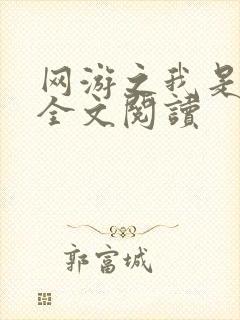 网游之我是
全文閱讀
郭富城